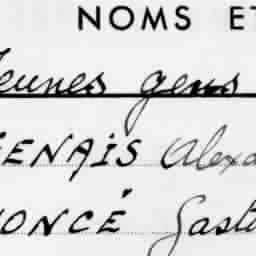 NOMS ET
Jeunes gens
GENAIS Alexa
PONCÉ Gasto